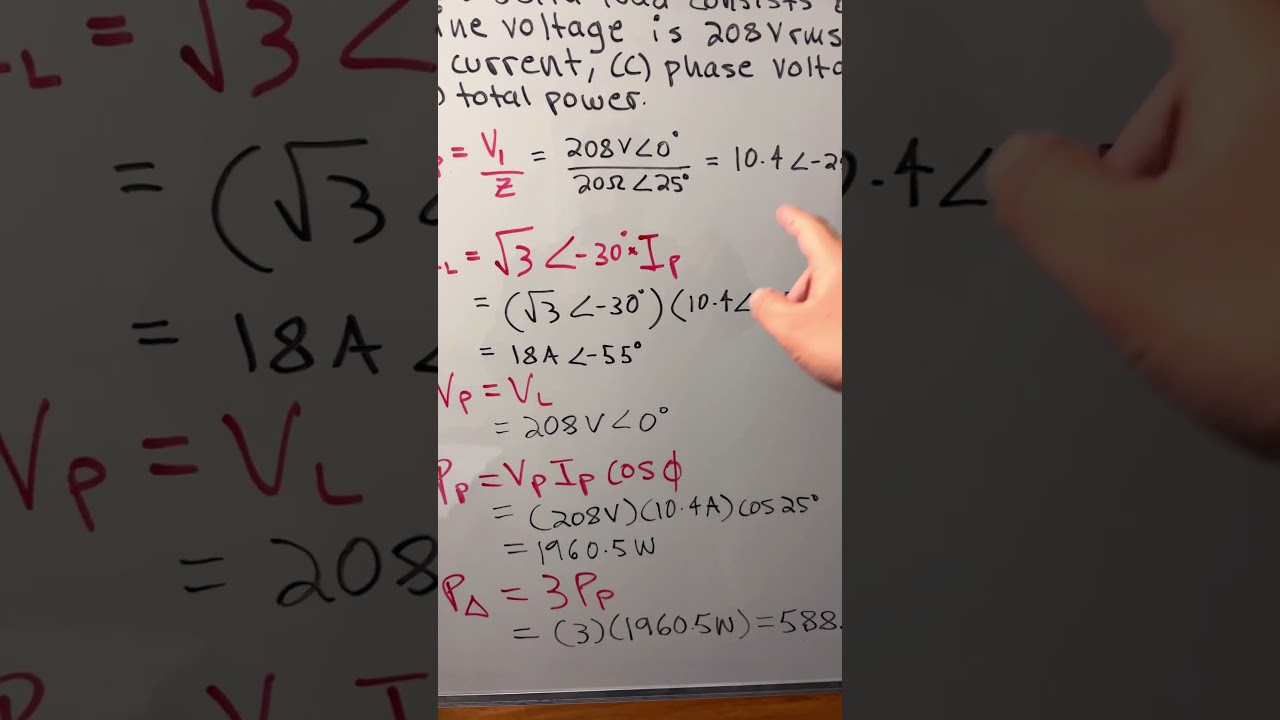 load consists
ine voltage is 208Vrms
current, (C) phase volta
total power.
= V₁/Z = 208V∠0°/20Ω∠25° = 10.4∠-2
L = √3∠-30°*Ip
= (√3∠-30°)(10.4∠
= 18A∠-55°
Vp = VL
= 208V∠0°
Pp = VpIp cosϕ
= (208V)(10.4A)cos25°
= 1960.5W
P△ = 3Pp
= (3)(1960.5W)=588